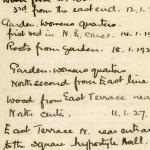 3rd from the east end. 12.1.
Garden. womens quarters.
first red in N.E. Court. 14.1.192
Roots from Garden. 18.1.192
Garden. womens quarters
North second from East line
Wood from East Terrace near
North Cents. 11.1.27.
East Terrace N. near entran
to the Square hypostyle Hall.